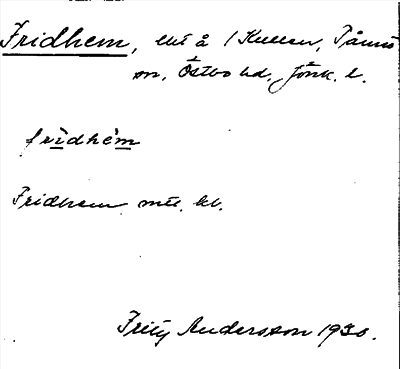 Fridhem, lht å 1 Kullen, Tånnö
sn, Östbo hd, Jönk. l.
frìdhém
Fridhem mtl. kl.
Fritz Andersson 1930.